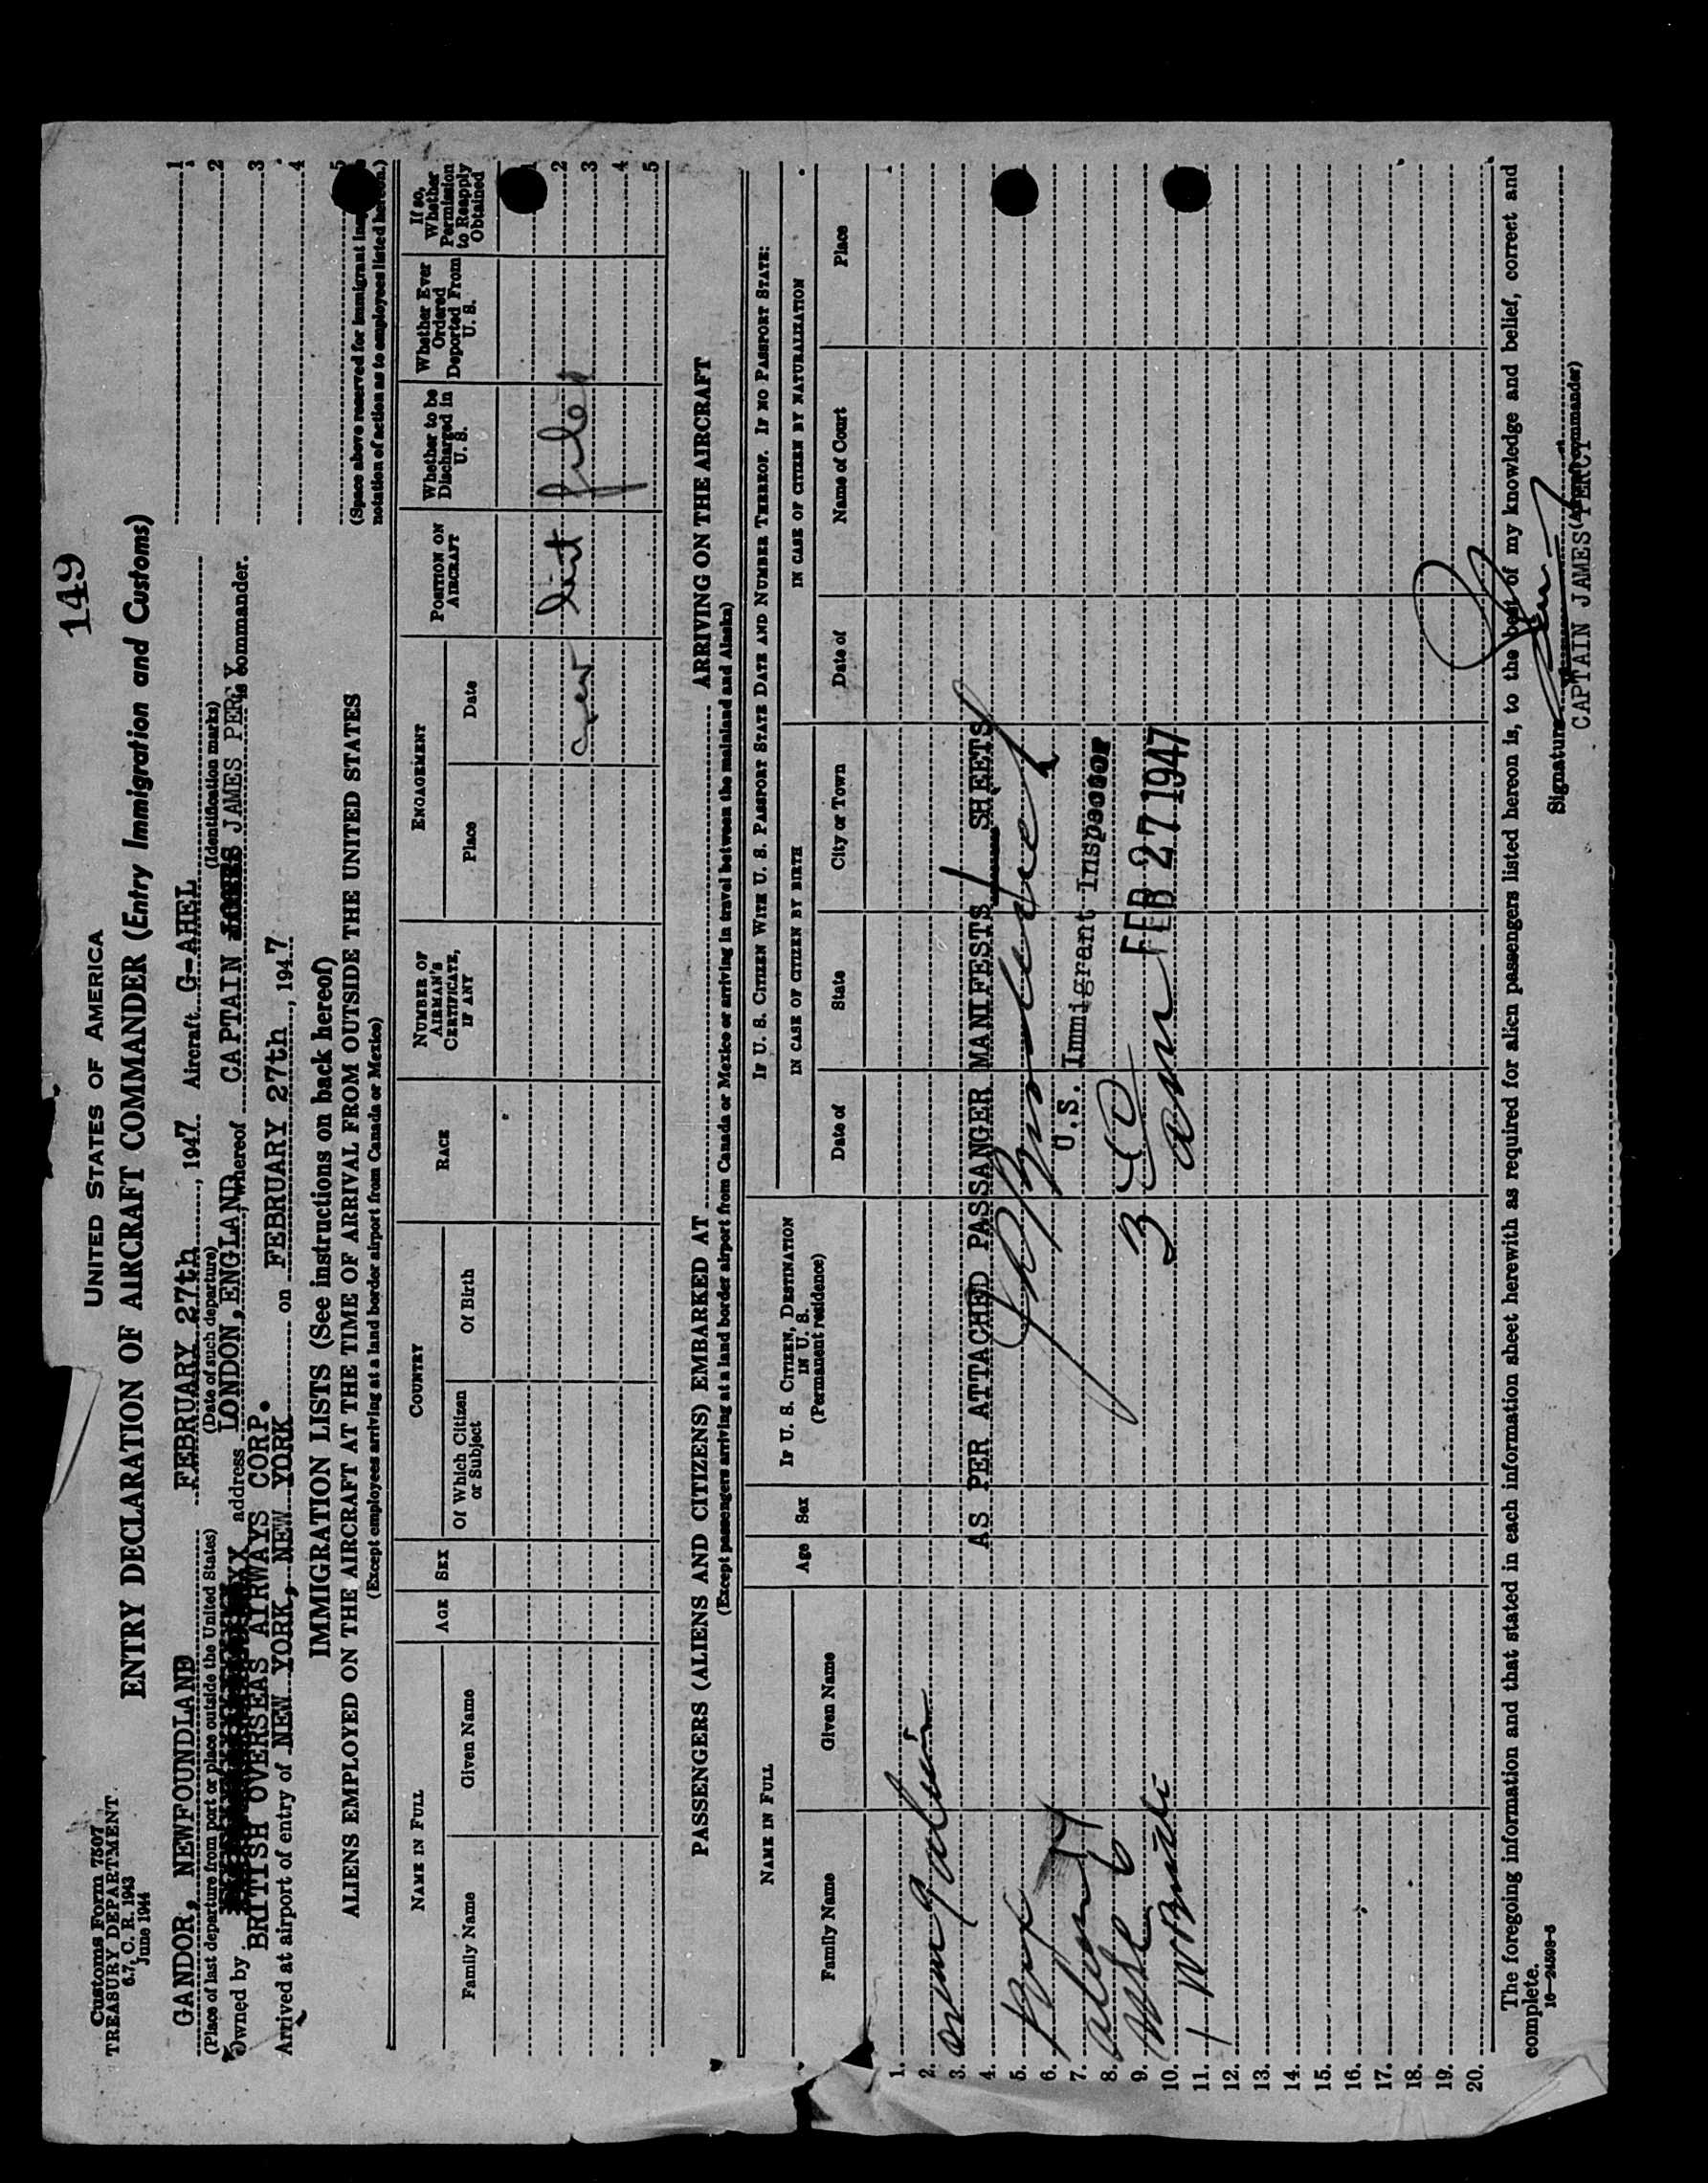 149
Customs Form 7507
TREASURY DEPARTMENT
6.7, C. R. 1943
June 1944
UNITED STATES OF AMERICA
ENTRY DECLARATION OF AIRCRAFT COMMANDER (Entry Immigration and Customs)
GANDOR, NEWFOUNDLAND FEBRUARY 27th, 1947. Aircraft G-AHEL
(Place of last departure from port or place outside the United States) (Date of such departure) (Identification marks)
Owned by address LONDON, ENGLAND, whereof CAPTAIN JAMES PERCY is commander.
BRITISH OVERSEAS AIRWAYS CORP.
Arrived at airport of entry of NEW YORK, NEW YORK on FEBRUARY 27th, 1947
1
2
3
4
5
(Space above reserved for immigrant
notation of action as to employees listed hereon.)
IMMIGRATION LISTS (See instructions on back hereof)
ALIENS EMPLOYED ON THE AIRCRAFT AT THE TIME OF ARRIVAL FROM OUTSIDE THE UNITED STATES
(Except employees arriving at a land border airport from Canada or Mexico)
NAME IN FULL
Family Name
Given Name
AGE
SEX
COUNTRY
Of Which Citizen or Subject
Of Birth
RACE
NUMBER OF AIRMAN'S CERTIFICATE, IF ANY
ENGAGEMENT
Place
Date
POSITION ON AIRCRAFT
Whether to be Discharged in U. S.
Whether Ever Ordered Deported From U. S.
If so, Whether Permission to Reapply Obtained
1
2
3
4
5
crew list filed
PASSENGERS (ALIENS AND CITIZENS) EMBARKED AT ARRIVING ON THE AIRCRAFT
(Except passengers arriving at a land border airport from Canada or Mexico or arriving in travel between the mainland and Alaska)
NAME IN FULL
Family Name
Given Name
Age
Sex
IF U. S. CITIZEN, DESTINATION IN U. S.
(Permanent residence)
IF U. S. CITIZEN WITH U. S. PASSPORT STATE DATE AND NUMBER THEREOF. IF NO PASSPORT STATE:
IN CASE OF CITIZEN BY BIRTH
Date of
State
City or Town
IN CASE OF CITIZEN BY NATURALIZATION
Date of
Name of Court
Place
1.
2.
3.
4.
5.
6.
7.
8.
9.
10.
11.
12.
13.
14.
15.
16.
17.
18.
19.
20.
AS PER ATTACHED PASSANGER MANIFESTS / SHEETS
U.S. Immigrant Inspector
3 40 am FEB 27 1947
The foregoing information and that stated in each information sheet herewith as required for alien passengers listed hereon is, to the best of my knowledge and belief, correct and
complete.
16—24598-5
Signature
(Aircraft commander)
CAPTAIN JAMES PERCY